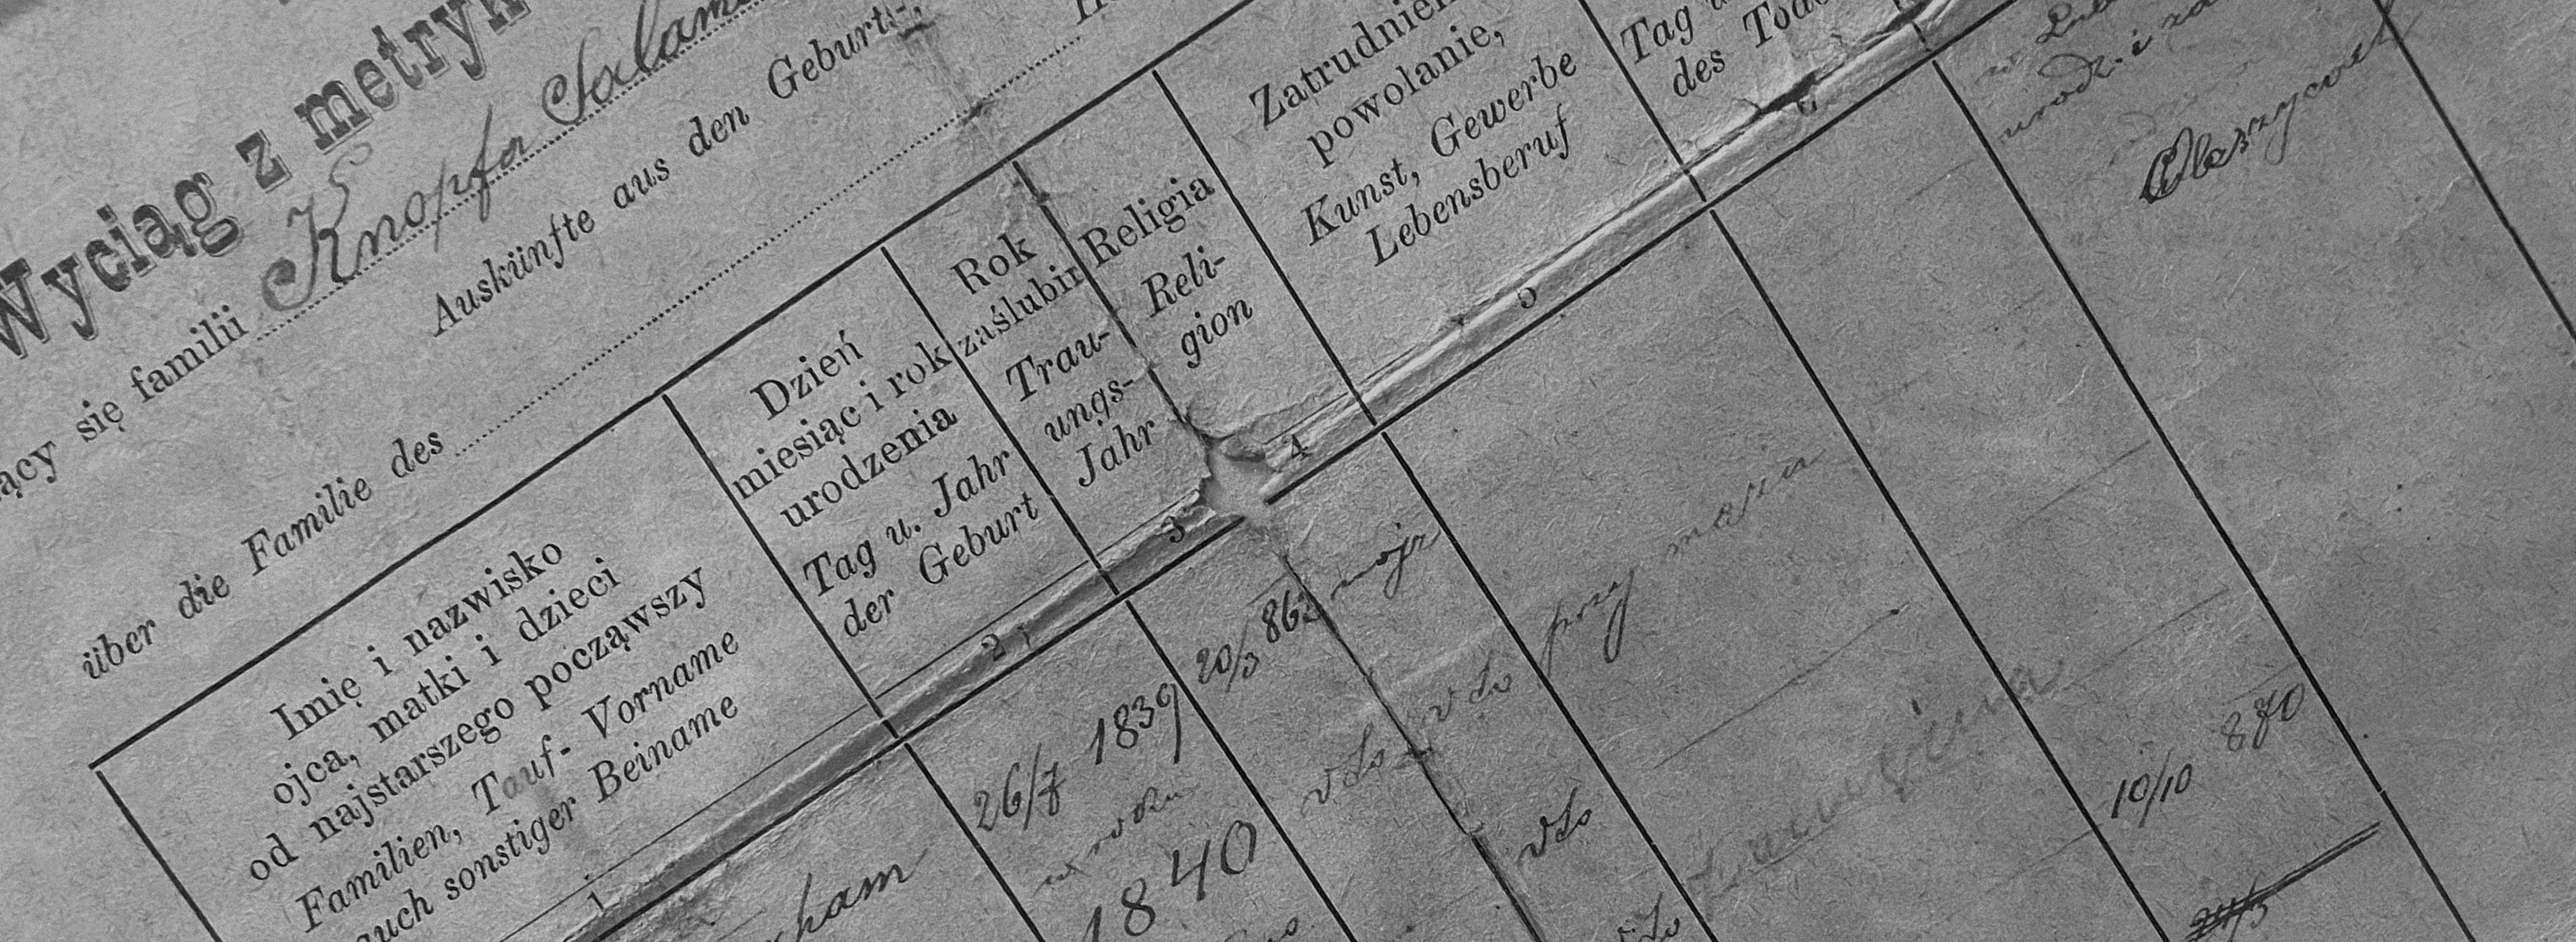 Wyciąg z metryk
ący się familii Knopfa Salam
Auskünfte aus den Geburts-,
über die Familie des
Imię i nazwisko
ojca, matki i dzieci
od najstarszego począwszy
Familien, Tauf- Vorname
auch sonstiger Beiname
Dzień
miesiąc i rok
urodzenia
Tag u. Jahr
der Geburt
Rok
zaślubin
Trau-
ungs-
Jahr
Religia
Reli-
gion
Zatrudnien
powołanie,
Kunst, Gewerbe
Lebensberuf
Tag u
des Tode
urodz. i
1
2
3
4
5
ham
26/7 1839
w roku
1840
20/3 862
mojż
vto
vto
przy mężu
vto
vto
10/10 870
24/3